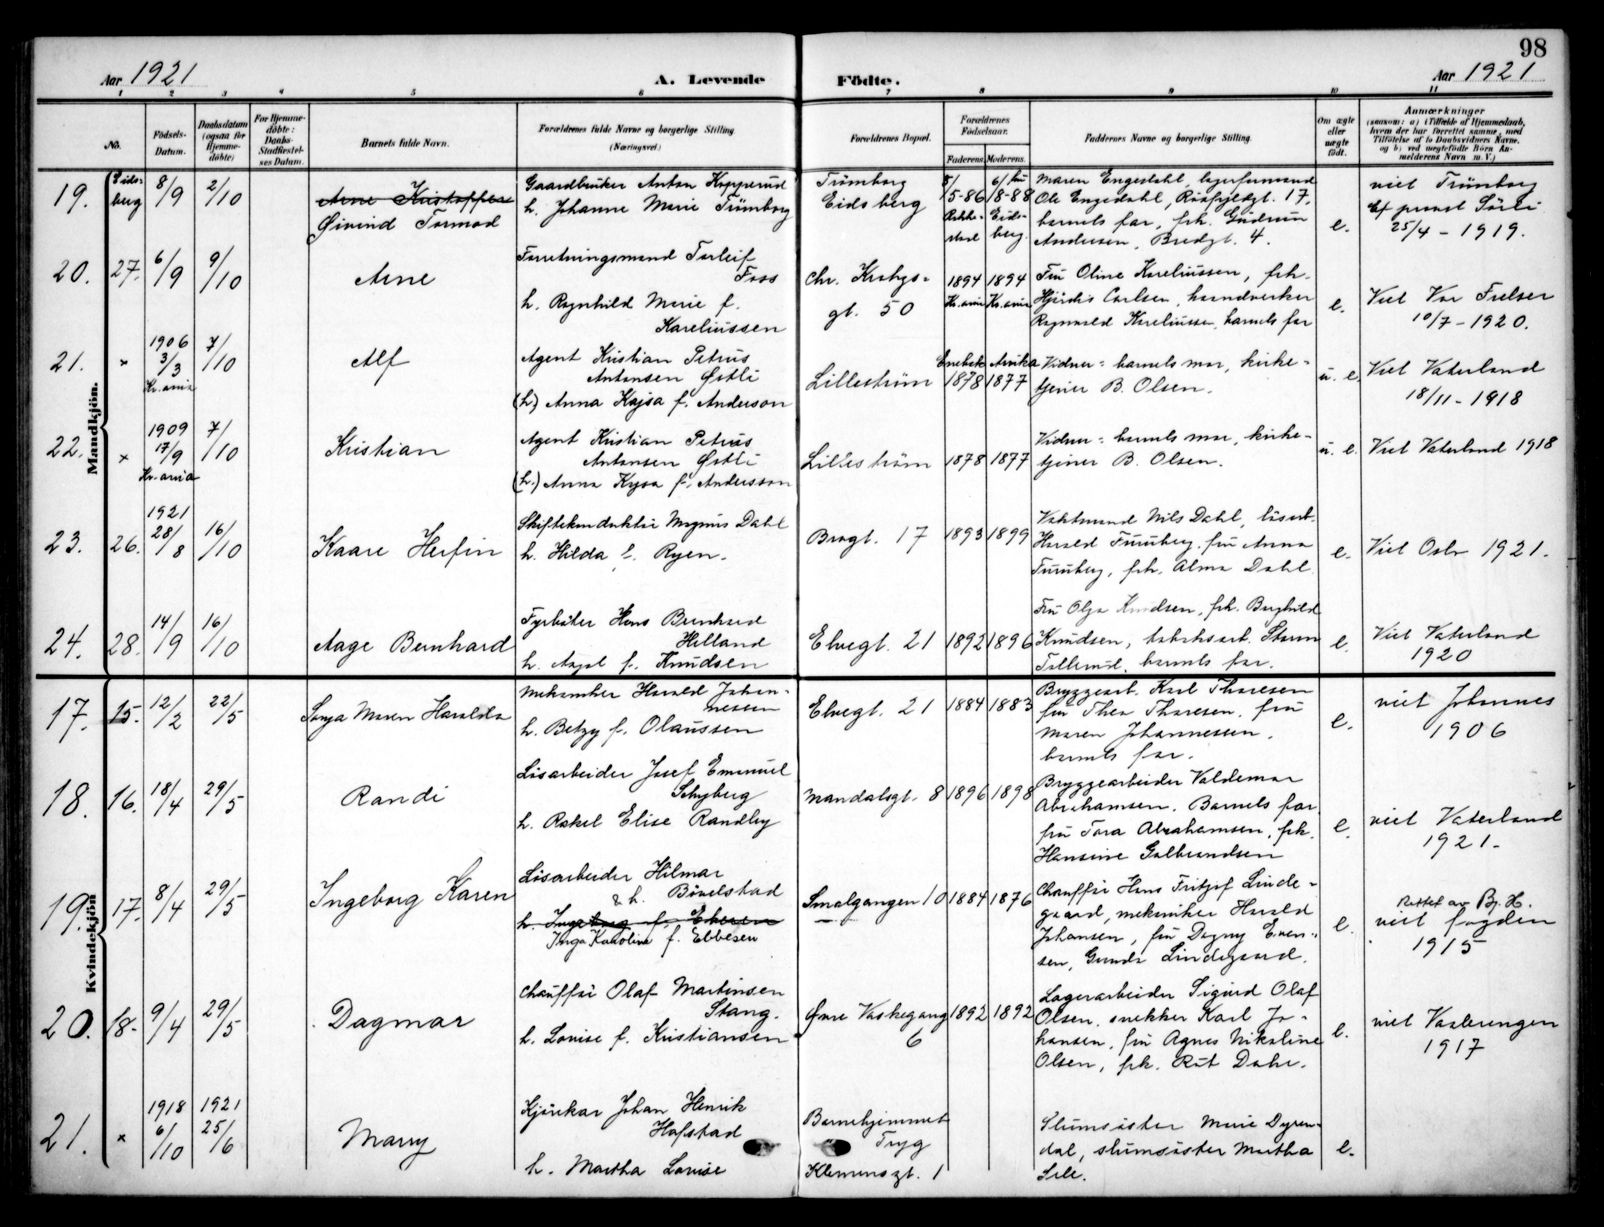 98
Aar 1921
A. Levende
Födte.
Aar 1921
1 2 3 4 5 6 7 8 9 10 11
No.
Födsels-
Datum.
Daabsdatum
(ogsaa för
Hjemme-
döbte)
For Hjemme-
döbte:
Daabs-
Stadfæstel-
ses Datum.
Barnets fulde Navn.
Forældrenes fulde Navne og borgerlige Stilling
(Næringsvei)
Forældrenes Bopæl.
Forældrenes
Födselsaar.
Faderens. Moderens.
Faddernes Navne og borgerlige Stilling.
Om ægte
eller
uægte
födt.
Anmærkninger
(saasom: a) i Tilfælde af Hjemmedaab,
hvem der har forrettet samme, med
Tilföielse af to Daabsvidners Navne,
og b) ved uægtefödte Börn An-
melderens Navn m. V.)
Mandkjön.
19. Eidsberg 8/9 2/10
Arne Kristoffer
Öivind Tormod
Gaardbruker Anton Kopperud
h. Johanne Marie Trömborg
Trömborg
Eidsberg
5-86 18-88
Eidsberg.
Maren Engedahl, lagerformand
Ole Engedahl, 17,
barnets far, frk. Gudrun
Andersen, Bredgt. 4.
e.
viet Trömborg
25/4 - 1919.
20. 27. 6/9 9/10
Arne
Forretningsmand Torleif
Foss
h. Ragnhild Marie f.
Kareliussen
Chr. Krohgs-
gt. 50
1894 1894
Kr.ania Kr.ania
Fru Oline Kareliussen, frk.
Hjördis Carlsen, haandverker
Ragnvald Kareliussen, barnets far
e.
Viet Vor Frelser
10/7 - 1920.
21. × 1906 3/3 Kr.ania 7/10
Alf
Agent Kristian Petrus
Antonsen Östli
(h.) Anna Kajsa f. Anderson
Lilleström
Enebak Arvika
1878 1877
Vidner: barnets mor, kirke-
tjener B. Olsen.
u. e.
Viet Vaterland
18/11 - 1918
22. × 1909 17/9 Kr.ania 7/10
Kristian
Agent Kristian Petrus
Antonsen Östli
(h.) Anna Kajsa f. Andersson
Lilleström
1878 1877
Vidner: barnets mor, kirke-
tjener B. Olsen.
u. e.
Viet Vaterland 1918
23. 26. 1921 28/8 16/10
Kaare Herfin
Skiftekonduktör Magnus Dahl
h. Hilda f. Ryen.
Brogt. 17
1893 1899
Vaktmand Nils Dahl, lösarb.
Harald Furuberg, fru Anna
Furuberg, frk. Alma Dahl
e.
Viet Oslo 1921.
24. 28. 14/9 16/10
Aage Bernhard
Fyrböter Hans Bernhard
Helland
h. Aagot f. Knudsen
Elvegt. 21
1892 1896
Fru Olga Knudsen, frk. Borghild
Knudsen, fabrikarb. Storm
barnets far.
e.
Viet Vaterland
1920
Kvindekjön
17. 15. 12/2 22/5
Sonja Maren Haralda
Mekaniker Harald Johan-
nessen
h. Betzy f. Olaussen
Elvegt. 21
1884 1883
Bryggearb. Karl Thoresen
fru Thea Thoresen, fru
Maren Johannessen,
barnets far.
e.
viet Johannes
1906
18. 16. 18/4 29/5
Randi
Lösarbeider Josef Emanuel
Schyberg
h. Rakel Elise Randby
Mandalsgt. 8
1896 1898
Bryggearbeider Valdemar
Abrahamsen. Barnets far
fru Tora Abrahamsen, frk.
Hansine Gulbrandsen
e.
viet Vaterland
1921.
19. 17. 8/4 29/5
Ingeborg Karen
Lösarbeider Hilmar
& h. Bövelstad
h. Ingeborg f. Ebesen
Inga Karoline f. Ebbesen
Smalgangen 10
1884 1876
Chaufför Hans Fritjof Linde-
gaard, mekaniker Harald
Johansen, fru Dagny Even-
sen, Gunda Lindegaard.
e.
Rettet av Bj. H.
viet Jagden
1915
20. 18. 9/4 29/5
Dagmar
Chaufför Olaf Martinsen
Stang.
h. Lovise f. Kristiansen
Övre Vaskegang
6
1892 1892
Lagerarbeider Sigurd Olaf
Olsen, snekker Karl Jo-
hansen, fru Agnes Nikoline
Olsen, frk. Rut Dahl.
e.
viet Vaalerengen
1917
21. × 1918 6/10 1921 25/6
Marry
Kjörekar Johan Henrik
Hafstad
h. Martha Lovise
Barnehjemmet
Tryg
Klemensgt. 1
Slumsöster Marie Dyren-
dal, slumsöster Martha
e.